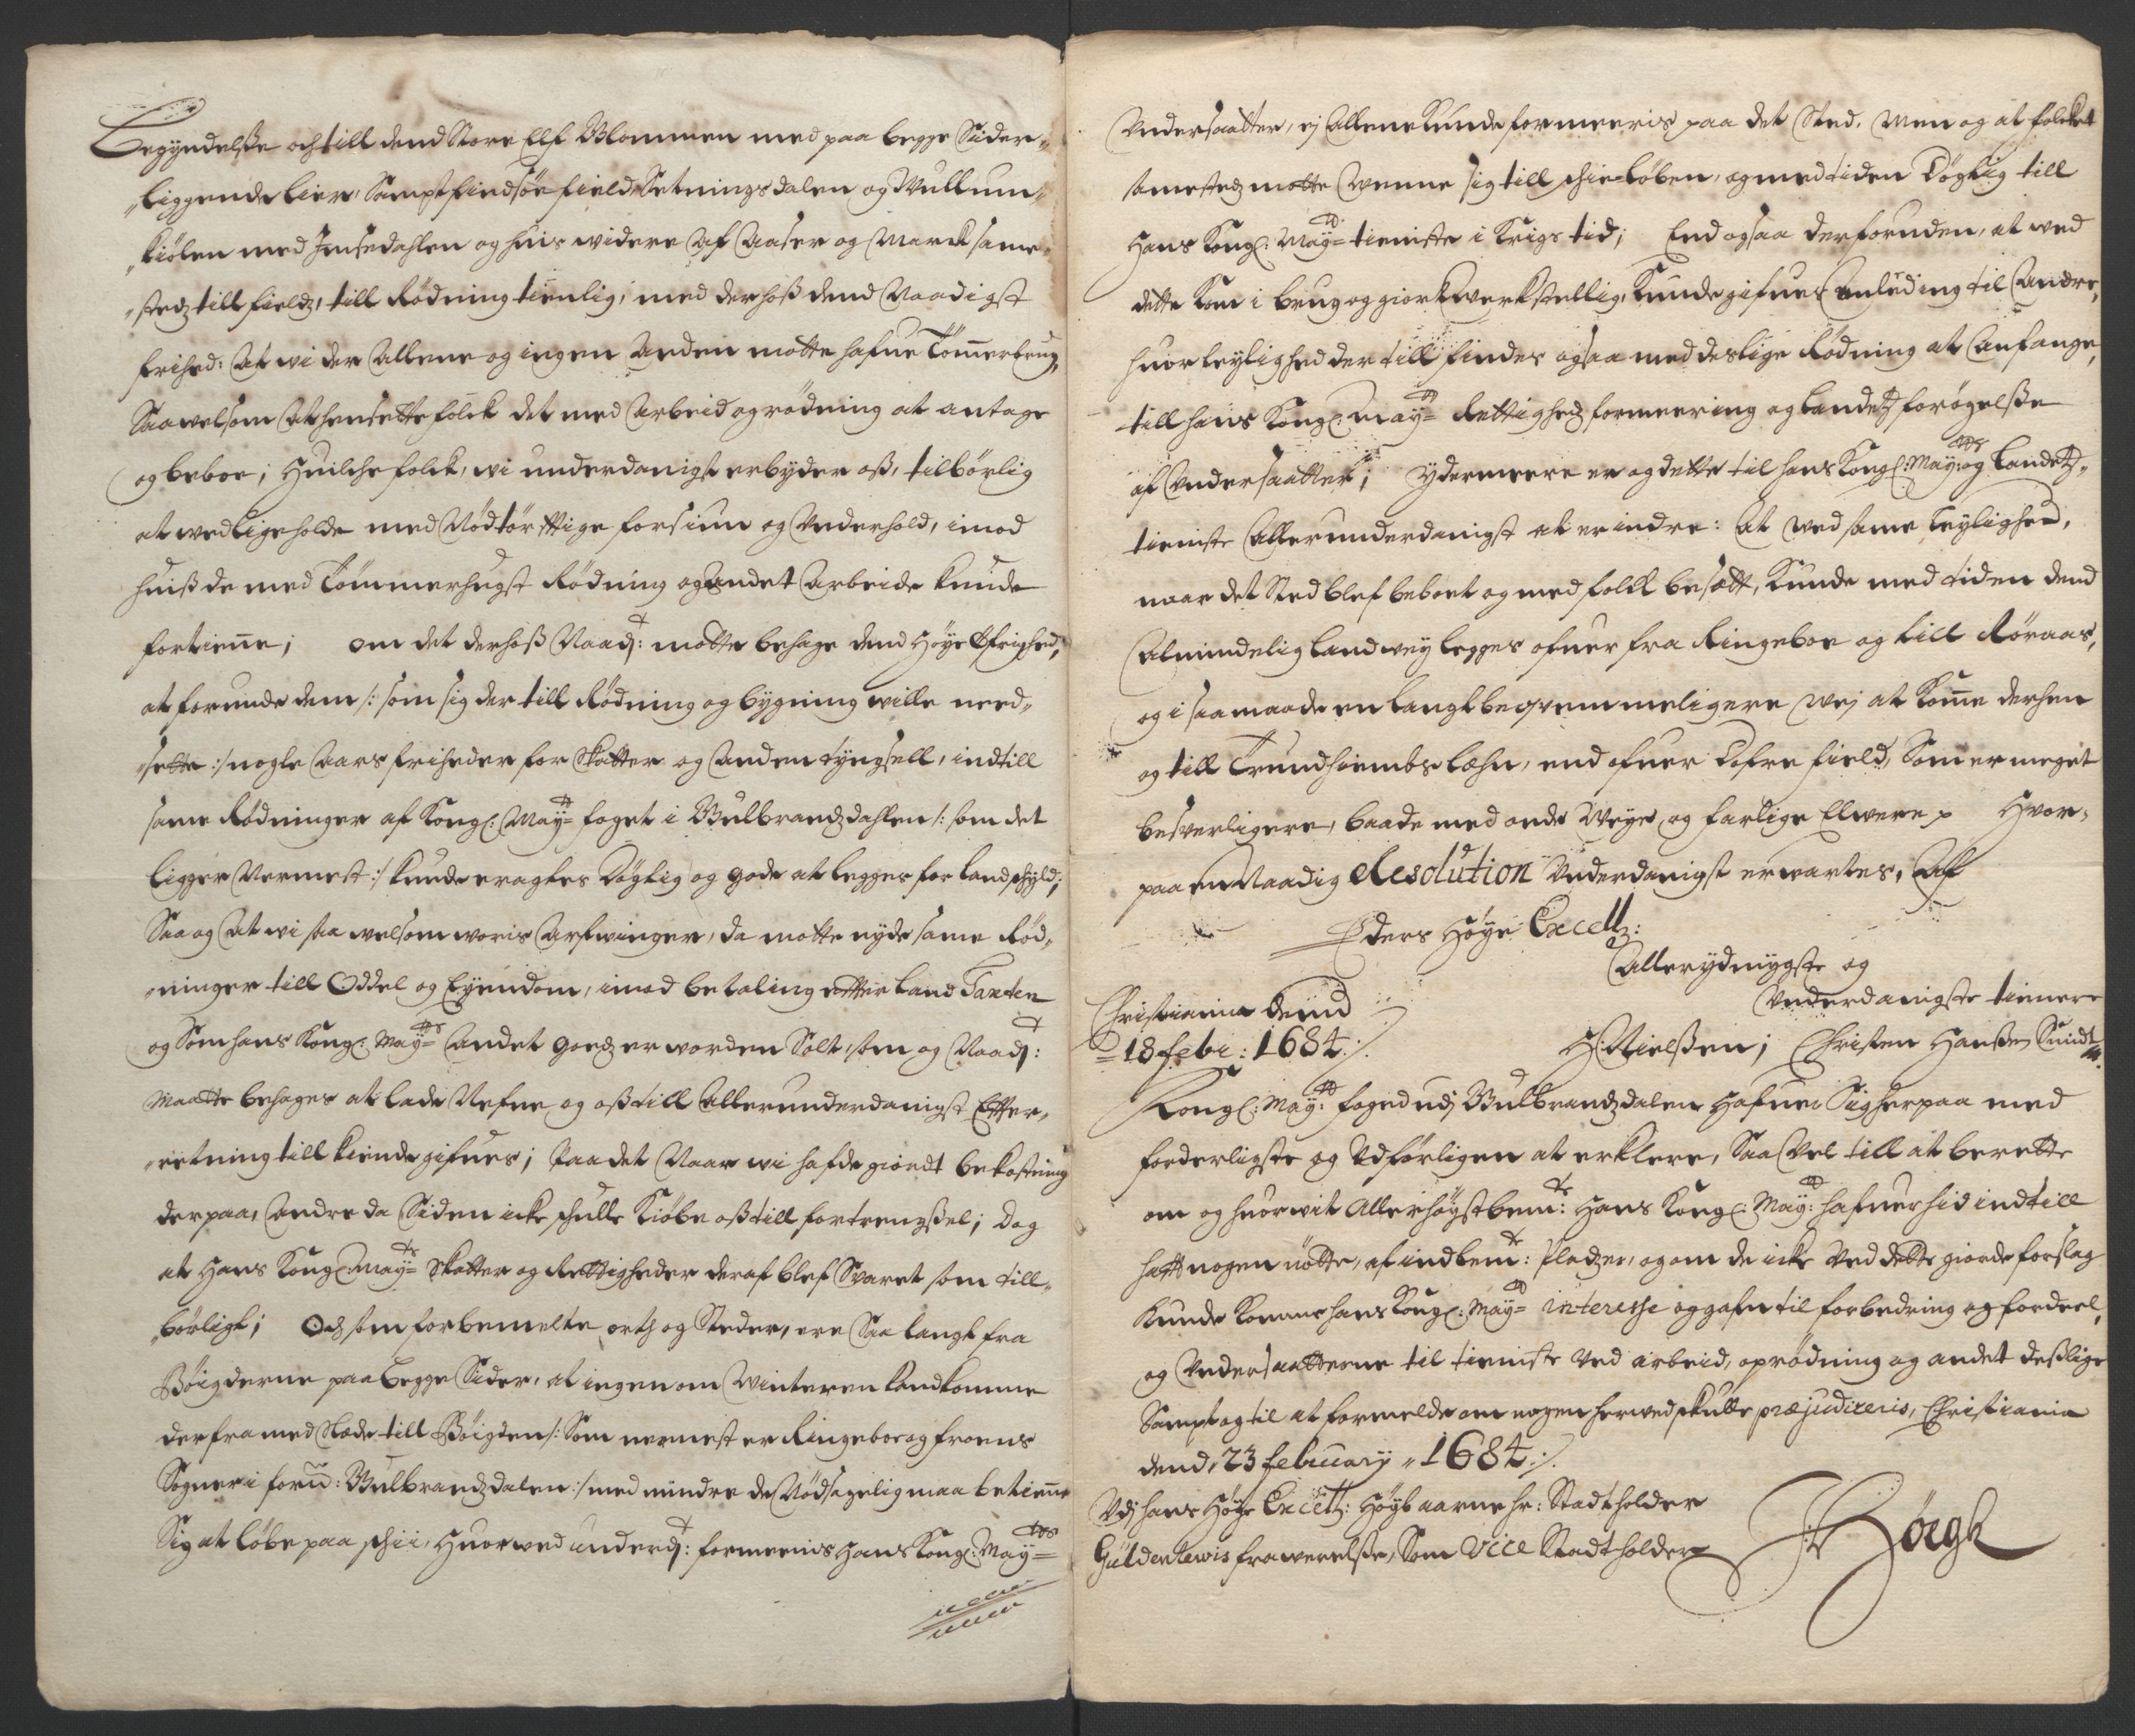 Begyndelsse och till dend Store Elf Glommen med paa begge Sider„
„liggende lier, Sampt findsøe field, Setnings dalen og Wullum„
„kiølen med Imsedahlen og huis widere Af Aaser og Marck same„
„stedz till fieldz, till Rødning tienlig, med derhoß dend Naadigst
frihed: At wi der Allene og ingen Anden motte hafue Tömerbrug,
Saawelsom At hensette folck det med Arbeid og rødning at antage
og beboe; Huilche folck, wi underdanigst erbyder oß, tilbörlig
at wedligeholde med Nödtörfftige forsiun og Underhold, imod
huiß de med Tömmerhugst Rødning og Andet Arbeide kunde
fortiene; om det derhoß Naad: motte behage dend Höye Öfrighed,
at forunde dem /: som sig der till Rødning og bygning wille need„
„sette :/ nogle Aars friheder for Skatter og Anden tyngsell, indtill
same Rødninger af Kong: May: foget i Gulbrandzdahlen /: som det
ligger Nermest :/ kunde eragtes Döglig og gode at legges for landschyld;
Saa og At wi saa welsom woris Arfwinger, da motte nyde same Rød„
„ninger till Oddel og Eyendom, imod betaling efter land Taxten
og Som hans Kong: May: Andet Goedz er worden Solt, som og Naad:
Maatte behages at lade Nefne, og oß till Allerunderdanigst Effter„
„retning tillkiende gifues; Paa det Naar wi hafde giordt bekostning
derpaa, Andre da Siden icke schulle Kiöbe oß till fortrengßel; dog
at Hans Kong: May: Skatter og Rettigheder deraf blef Svaret som till„
„börligt; Och som forbemelte orth og Steder, ere Saa langt fra
Böigderne paa begge Sider, at ingen om Winteren kand komme
derfra med Slæde till Böigden /: Som nermest er Ringeboe og froens
Sogner i forn: Gulbrandzdalen :/ med mindre de Nödsagelig maa betiene
Sig at löbe paa schii, Huorwed underd: formeenis Hans Kong: May:
Undersaatter, ej Allene kunde formeeris paa det Sted, Men og at folcket
samestedz motte Wenne sig till schie-löben, og med tiden Döglig till
Hans Kong: May: tieniste i Krigs tid; End ogsaa derforuden, at wed
dette kom i brug og giort Werkstellig, kunde gifues Anleding til Andre,
huor leylighed der till findes ogsaa med deslige Rødning at Anfange,
till hans Kong: May: Rettighedz formeering og landetz forøgelße
af Undersaatter; Ydermeere er og dette til hans Kong: May: og landetz„
tieniste Allerunderdanigst at erindre: At wed same leylighed,
naar det Sted blef beboet og med folck besatt, kunde med tiden dend
Almindelig landwey legges ofuer fra Ringeboe og till Røraas,
og i saamaade en langt beqvemmeligere Wej at kome derhen
og till Trundhiembs læhn, end ofuer Dofre field, Som er meget
besverligere, baade med onde Weye og farlige Elwere Hvor„
paa en Naadig Resolution Underdanigst erwartes, Af
Eders Höye Excell:
Allerydmygste og
Underdanigste tienere
Christiania dend
18 febr: 1684
H: Nielßen; Christen Hanßen Sundt
Kong: May: foged udj Gulbrandzdalen Hafuer Sig herpaa med
forderligste og Udförligen at erklere, Saa Vel till at berette
om og huorwit Allerhöystbem: Hans Kong: May: hafuer hid indtill
hafft nogen nötte, af indbem: Pladzer, og om de icke Ved dette giorde forslag
kunde komme hans Kong: May: interesse og gafn til forbedring og fordeel,
og Undersaatterne til tieniste Ved arbeid, oprödning og andet deßlige
Sampt og til at formelde om nogen herved skulle præjudiceris, Christiania
dend, 23 february „ 1684
Udj hans Höye Excell: Höybaarne hr: Stadtholder
Güldenlewis frawerelße, Som Vice Stadtholder